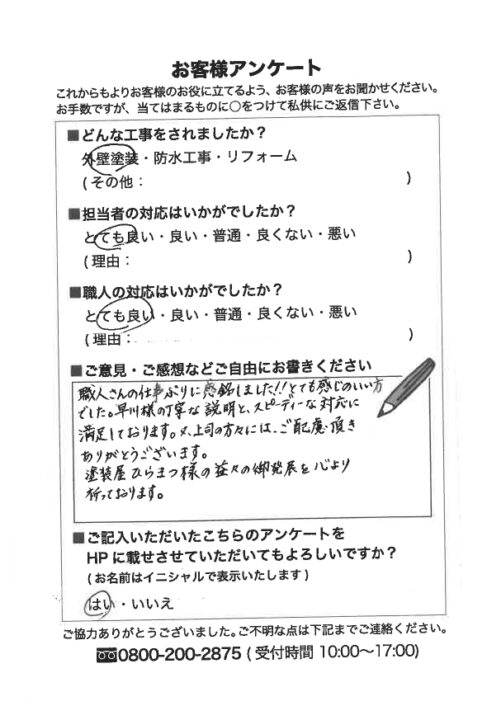 お客様アンケート
これからもよりお客様のお役に立てるよう、お客様の声をお聞かせください。
お手数ですが、当てはまるものに○をつけて私供にご返信下さい。
■どんな工事をされましたか？
外壁塗装・防水工事・リフォーム
(その他： )
■担当者の対応はいかがでしたか？
とても良い・良い・普通・良くない・悪い
(理由： )
■職人の対応はいかがでしたか？
とても良い・良い・普通・良くない・悪い
(理由： )
■ご意見・ご感想などご自由にお書きください
職人さんの仕事ぶりに感銘しました!!とても感じのいい方
でした。早川様の丁寧な説明と、スピーディーな対応に
満足しております。又、上司の方々には、ご配慮頂き
ありがとうございます。
塗装屋ひらまつ様の益々の御発展を心より
祈っております。
■ご記入いただいたこちらのアンケートを
HPに載せさせていただいてもよろしいですか？
(お名前はイニシャルで表示いたします)
はい・いいえ
ご協力ありがとうございました。ご不明な点は下記までご連絡ください。
0800-200-2875 (受付時間 10:00～17:00)